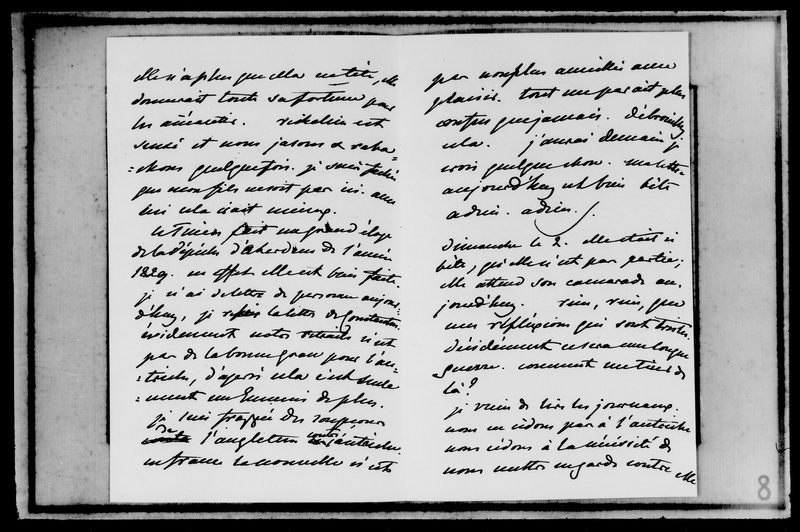 elle n'a plus que ella en tête, elle
donnerait toute sa fortune pour
les
sensé et nous jasons et raba-
=chons quelquefois. je suis fachée
que mon fils ne soit pas ici. avec
lui cela irait mieux.
le Times fait un grand éloge
de la dépêche d'Aberdeen de l'année
1829. en effet elle est bien faite.
je n'ai de lettre de personne aujour-
d'huy, je reçois la lettre de Constantin.
évidemment notre retraite n'est
pas de la bonne grace pour l'au-
=triche, d'après cela c'est seule
=ment un Ennemi de plus.
je suis frappée des soupçons
de l'angleterre contre l'autriche.
en france la nouvelle n'est
par non plus accueillie avec
plaisir. tout me parait plus
confus que jamais. débrouillez
cela. j'aurai demain je
crois quelque chose. ma lettre
aujourd'huy est bien bête
adieu. adieu.
Dimanche le 2. elle était si
bête, qu'elle n'est pas partie;
elle attend son camarade au-
jourd'huy. rien, rien, que
mes réfléxions qui sont tristes.
Décidément ce sera une longue
guerre. comment me tirer de
là?
je viens de lire les journaux.
nous ne cédons pas à l'autriche
nous cédons à la nécessité de
nous mettre en garde contre elle
8